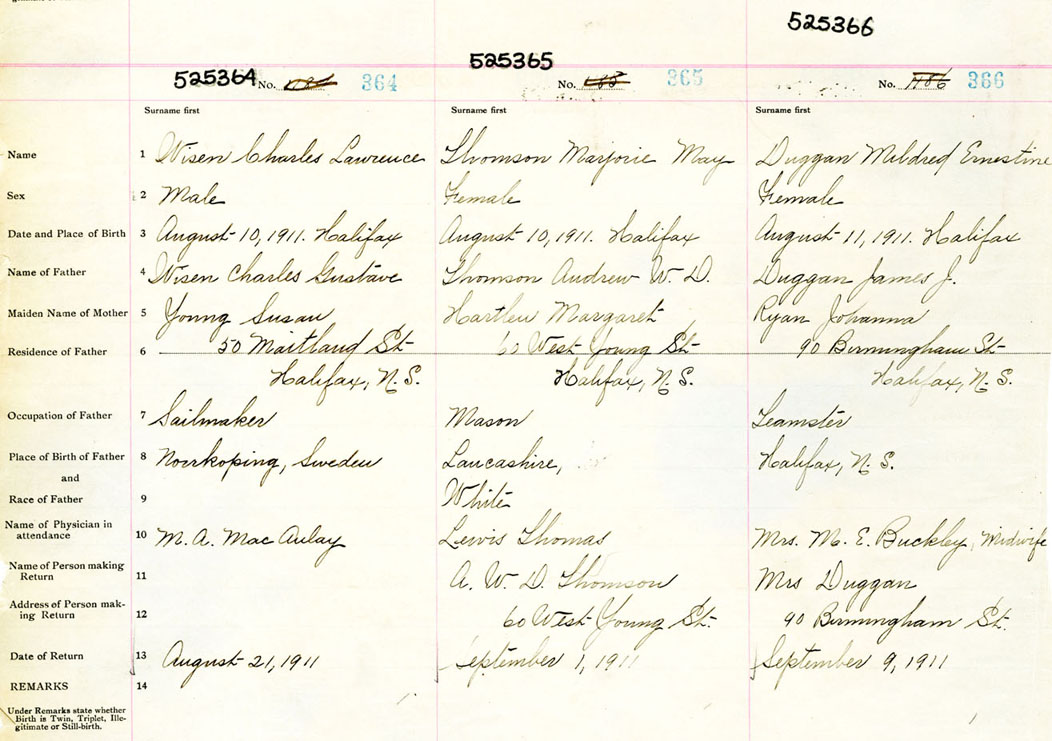 525366
525364 No. 364
525365 No. 365
No. 1186 366
Surname first Surname first Surname first
Name 1 Wisen Charles Lawrence Thomson Marjorie May Duggan Mildred Ernestine
Sex 2 Male Female Female
Date and Place of Birth 3 August 10, 1911. Halifax August 10, 1911. Halifax August 11, 1911. Halifax
Name of Father 4 Wisen Charles Gustave Thomson Andrew W. D. Duggan James J.
Maiden Name of Mother 5 Young Susan Hartlen Margaret Ryan Johanna
Residence of Father 6 50 Maitland St. 60 West Young St. 90 Birmingham St.
Halifax, N.S. Halifax, N.S. Halifax, N.S.
Occupation of Father 7 Sailmaker Mason Teamster
Place of Birth of Father 8 Noorkoping, Sweden Lancashire, Halifax, N.S.
and
Race of Father 9 White
Name of Physician in
attendance 10 M. A. MacAulay Lewis Thomas Mrs. M. E. Buckley, Midwife
Name of Person making
Return 11 A. W. D. Thomson Mrs Duggan
Address of Person mak-
ing Return 12 60 West Young St. 90 Birmingham St.
Date of Return 13 August 21, 1911 September 1, 1911 September 9, 1911
REMARKS 14
Under Remarks state whether
Birth is Twin, Triplet, Ille-
gitimate or Still-birth.